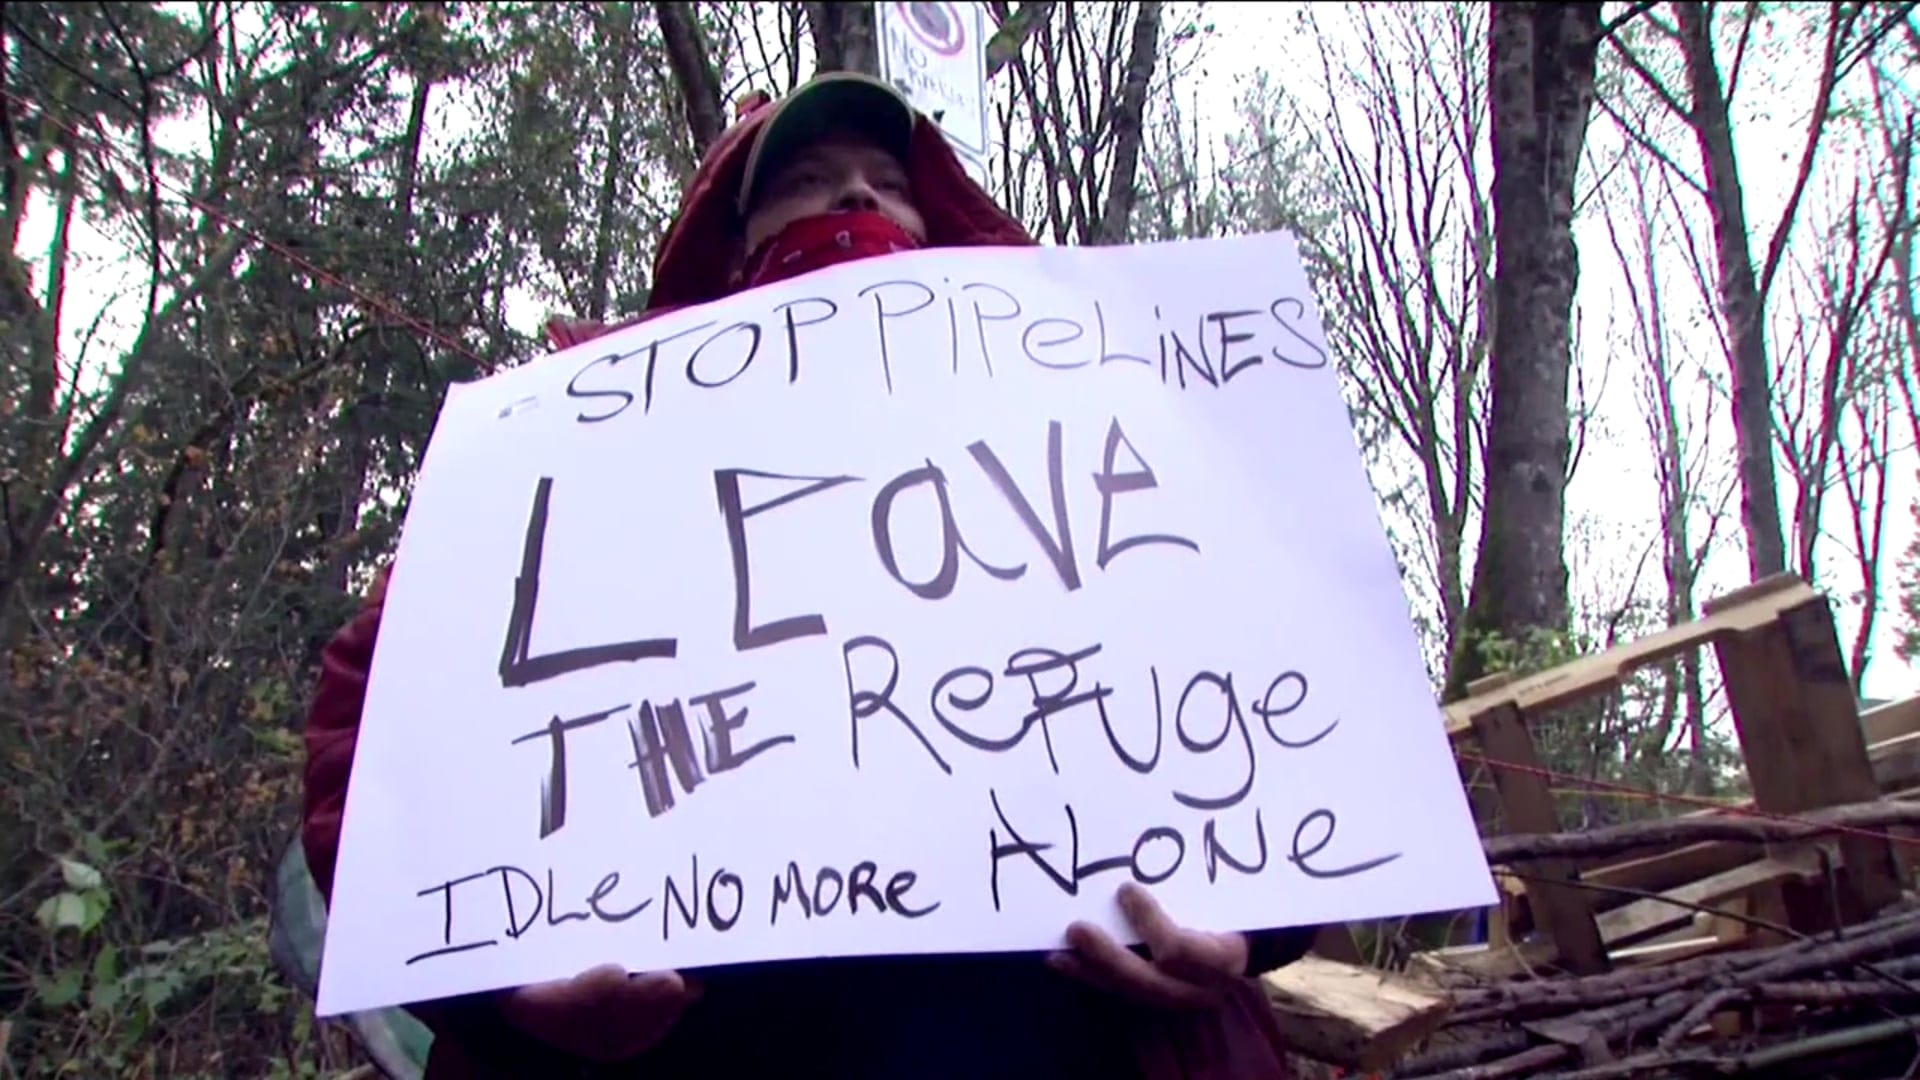 NO
STOP PIPeLiNES
LEaVE
THE ReFUge
IDLe NO MORe ALONe